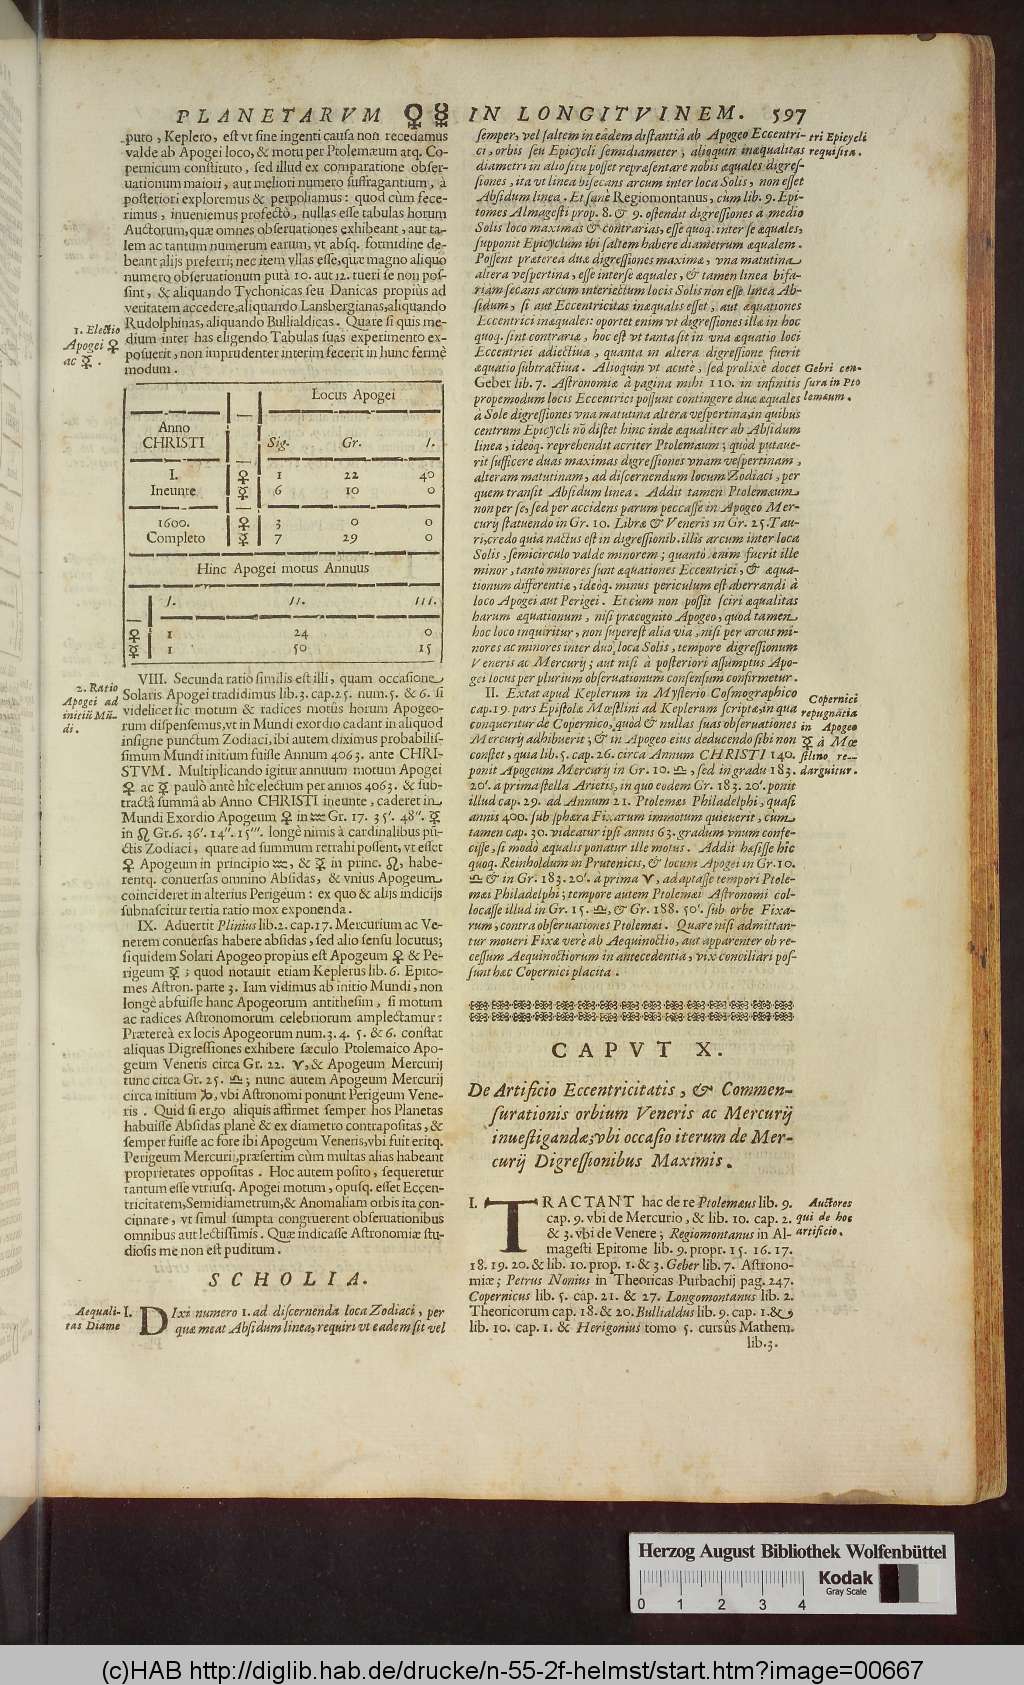 PLANETARVM ♀ ☿ IN LONGITVINEM. 597
puto, Keplero, est vt sine ingenti causa non recedamus
valde ab Apogei loco, & motu per Ptolemæum atq. Co-
pernicum constituto, sed illud ex comparatione obser-
uationum maiori, aut meliori numero suffragantium, à
posteriori exploremus & perpoliamus: quod cùm fece-
rimus, inueniemus profectò, nullas esse tabulas horum
Auctorum, quæ omnes obseruationes exhibeant, aut ta-
lem ac tantum numerum earum, vt absq. formidine de-
beant alijs præferri; nec item vllas esse, quæ magno aliquo
numero obseruationum putà 10. aut 12. tueri se non pos-
sint, & aliquando Tychonicas seu Danicas propiùs ad
veritatem accedere, aliquando Lansbergianas, aliquando
Rudolphinas, aliquando Bullialdicas. Quare si quis me-
dium inter has eligendo Tabulas suas experimento ex-
posuerit, non imprudenter interim fecerit in hunc fermè
modum.
1. Electio
Apogei ♀
ac ☿.
Locus Apogei
Anno
CHRISTI
Sig. Gr. I.
I. ♀ 1 22 40
Ineunte ☿ 6 10 0
1600. ♀ 3 0 0
Completo ☿ 7 29 0
Hinc Apogei motus Annuus
I. II. III.
♀ 1 24 0
☿ 1 50 15
2. Ratio
Apogei ad
initiũ Mũ-
di.
VIII. Secunda ratio similis est illi, quam occasione
Solaris Apogei tradidimus lib. 3. cap. 25. num. 5. & 6. si
videlicet sic motum & radices motûs horum Apogeo-
rum dispensemus, vt in Mundi exordio cadant in aliquod
insigne punctum Zodiaci, ibi autem diximus probabilis-
simum Mundi initium fuisse Annum 4063. ante CHRI-
STVM. Multiplicando igitur annuum motum Apogei
♀ ac ☿ paulò antè hîc electum per annos 4063. & sub-
tractâ summâ ab Anno CHRISTI ineunte, caderet in
Mundi Exordio Apogeum ♀ in ♒ Gr. 17. 35′. 48″. ☿
in ♌ Gr. 6. 36′. 14″. 15‴. longè nimis à cardinalibus pũ-
ctis Zodiaci, quare ad summum retrahi possent, vt esset
♀ Apogeum in principio ♒, & ☿ in princ. ♌, habe-
rentq. conuersas omnino Absidas, & vnius Apogeum
coincideret in alterius Perigeum: ex quo & alijs indicijs
subnascitur tertia ratio mox exponenda.
IX. Aduertit Plinius lib. 2. cap. 17. Mercurium ac Ve-
nerem conuersas habere absidas, sed alio sensu locutus;
siquidem Solari Apogeo propius est Apogeum ♀ & Pe-
rigeum ☿; quod notauit etiam Keplerus lib. 6. Epito-
mes Astron. parte 3. Iam vidimus ab initio Mundi, non
longè abfuisse hanc Apogeorum antithesim, si motum
ac radices Astronomorum celebriorum amplectamur:
Prætereà ex locis Apogeorum num. 3. 4. 5. & 6. constat
aliquas Digressiones exhibere sæculo Ptolemaico Apo-
geum Veneris circa Gr. 22. ♈, & Apogeum Mercurij
tunc circa Gr. 25. ♎; nunc autem Apogeum Mercurij
circa initium ♑, vbi Astronomi ponunt Perigeum Vene-
ris. Quid si ergo aliquis affirmet semper hos Planetas
habuisse Absidas planè & ex diametro contrapositas, &
semper fuisse ac fore ibi Apogeum Veneris, vbi fuit eritq.
Perigeum Mercurij, præsertim cùm multas alias habeant
proprietates oppositas. Hoc autem posito, sequeretur
tantum esse vtriusq. Apogei motum, opusq. esset Eccen-
tricitatem, Semidiametrum, & Anomaliam orbis ita con-
cinnare, vt simul sumpta congruerent obseruationibus
omnibus aut lectissimis. Quæ indicasse Astronomiæ stu-
diosis me non est puditum.
SCHOLIA.
Aequali-
tas Diame
I. DIxi numero 1. ad discernenda loca Zodiaci, per
quæ meat Absidum linea, requiri vt eadem sit vel
semper, vel saltem in eâdem distantiâ ab Apogeo Eccentri-
ci, orbis seu Epicycli semidiameter; alioquin inæqualitas
diametri in alio situ posset repræsentare nobis æquales digres-
siones, ita vt linea bisecans arcum inter loca Solis, non esset
Absidum linea. Et sanè Regiomontanus, cùm lib. 9. Epi-
tomes Almagesti prop. 8. & 9. ostendit digressiones a medio
Solis loco maximas & contrarias, esse quoq. inter se æquales,
supponit Epicyclum ibi saltem habere diametrum æqualem.
Possent præterea duæ digressiones maximæ, vna matutina
altera vespertina, esse inter se æquales, & tamen linea bifa-
riam secans arcum interiectum locis Solis non esse linea Ab-
sidum, si aut Eccentricitas inæqualis esset, aut æquationes
Eccentrici inæquales: oportet enim vt digressiones illæ in hoc
quoq. sint contrariæ, hoc est vt tanta sit in vna æquatio loci
Eccentrici adiectiua, quanta in altera digressione fuerit
æquatio subtractiua. Alioquin vt acutè, sed prolixè docet
Geber lib. 7. Astronomiæ à pagina mihi 110. in infinitis
propemodum locis Eccentrici possunt contingere duæ æquales
à Sole digressiones vna matutina altera vespertina, in quibus
centrum Epicycli nõ distet hinc inde æqualiter ab Absidum
linea, ideóq. reprehendit acriter Ptolemæum; quòd putaue-
rit sufficere duas maximas digressiones vnam vespertinam,
alteram matutinam, ad discernendum locum Zodiaci, per
quem transit Absidum linea. Addit tamen Ptolemæum
non per se, sed per accidens parum peccasse in Apogeo Mer-
curij statuendo in Gr. 10. Libræ & Veneris in Gr. 25. Tau-
ri; credo quia nactus est in digressionib. illis arcum inter loca
Solis, semicirculo valde minorem; quantò enim fuerit ille
minor, tantò minores sunt æquationes Eccentrici, & æqua-
tionum differentiæ, ideóq. minus periculum est aberrandi à
loco Apogei aut Perigei. Et cùm non possit sciri æqualitas
harum æquationum, nisi præcognito Apogeo, quod tamen
hoc loco inquiritur, non superest alia via, nisi per arcus mi-
nores ac minores inter duo loca Solis, tempore digressionum
Veneris ac Mercurij; aut nisi à posteriori assumptus Apo-
gei locus per plurium obseruationum consensum confirmetur.
II. Extat apud Keplerum in Mysterio Cosmographico
cap. 19. pars Epistolæ Mœstlini ad Keplerum scriptæ, in qua
conqueritur de Copernico, quòd & nullas suas obseruationes
Mercurij adhibuerit; & in Apogeo eius deducendo sibi non
constet, quia lib. 5. cap. 26. circa Annum CHRISTI 140.
ponit Apogeum Mercurij in Gr. 10. ♎, sed in gradu 183.
20′. a prima stella Arietis, in quo eodem Gr. 183. 20′. ponit
illud cap. 29. ad Annum 21. Ptolemæi Philadelphi, quasi
annis 400. sub sphæra Fixarum immotum quieuerit, cùm
tamen cap. 30. videatur ipsi annis 63. gradum vnum confe-
cisse, si modò æqualis ponatur ille motus. Addit hæsisse hîc
quoq. Reinholdum in Prutenicis, & locum Apogei in Gr. 10.
♎ & in Gr. 183. 20′. a prima ♈, adaptasse tempori Ptole-
mæi Philadelphi; tempore autem Ptolemæi Astronomi col-
locasse illud in Gr. 15. ♎, & Gr. 188. 50′. sub orbe Fixa-
rum, contra obseruationes Ptolemæi. Quare nisi admittan-
tur moueri Fixæ verè ab Aequinoctio, aut apparenter ob re-
cessum Aequinoctiorum in antecedentia, vix conciliari pos-
sunt hæc Copernici placita.
tri Epicycli
requisita.
Gebri cen-
sura in Pto
lemæum.
Copernici
repugnãtia
in Apogeo
☿ à Mœ
stlino re-
darguitur.
CAPVT X.
De Artificio Eccentricitatis, & Commen-
surationis orbium Veneris ac Mercurij
inuestigandæ; vbi occasio iterum de Mer-
curij Digressionibus Maximis.
I. TRACTANT hac de re Ptolemæus lib. 9.
cap. 9. vbi de Mercurio, & lib. 10. cap. 2.
& 3. vbi de Venere; Regiomontanus in Al-
magesti Epitome lib. 9. propr. 15. 16. 17.
18. 19. 20. & lib. 10. prop. 1. & 3. Geber lib. 7. Astrono-
miæ; Petrus Nonius in Theoricas Purbachij pag. 247.
Copernicus lib. 5. cap. 21. & 27. Longomontanus lib. 2.
Theoricorum cap. 18. & 20. Bullialdus lib. 9. cap. 1. &
lib. 10. cap. 1. & Herigonius tomo 5. cursûs Mathem.
lib. 3.
Auctores
qui de hoc
artificio.
Herzog August Bibliothek Wolfenbüttel
Kodak
Gray Scale
0 1 2 3 4
(c)HAB http://diglib.hab.de/drucke/n-55-2f-helmst/start.htm?image=00667